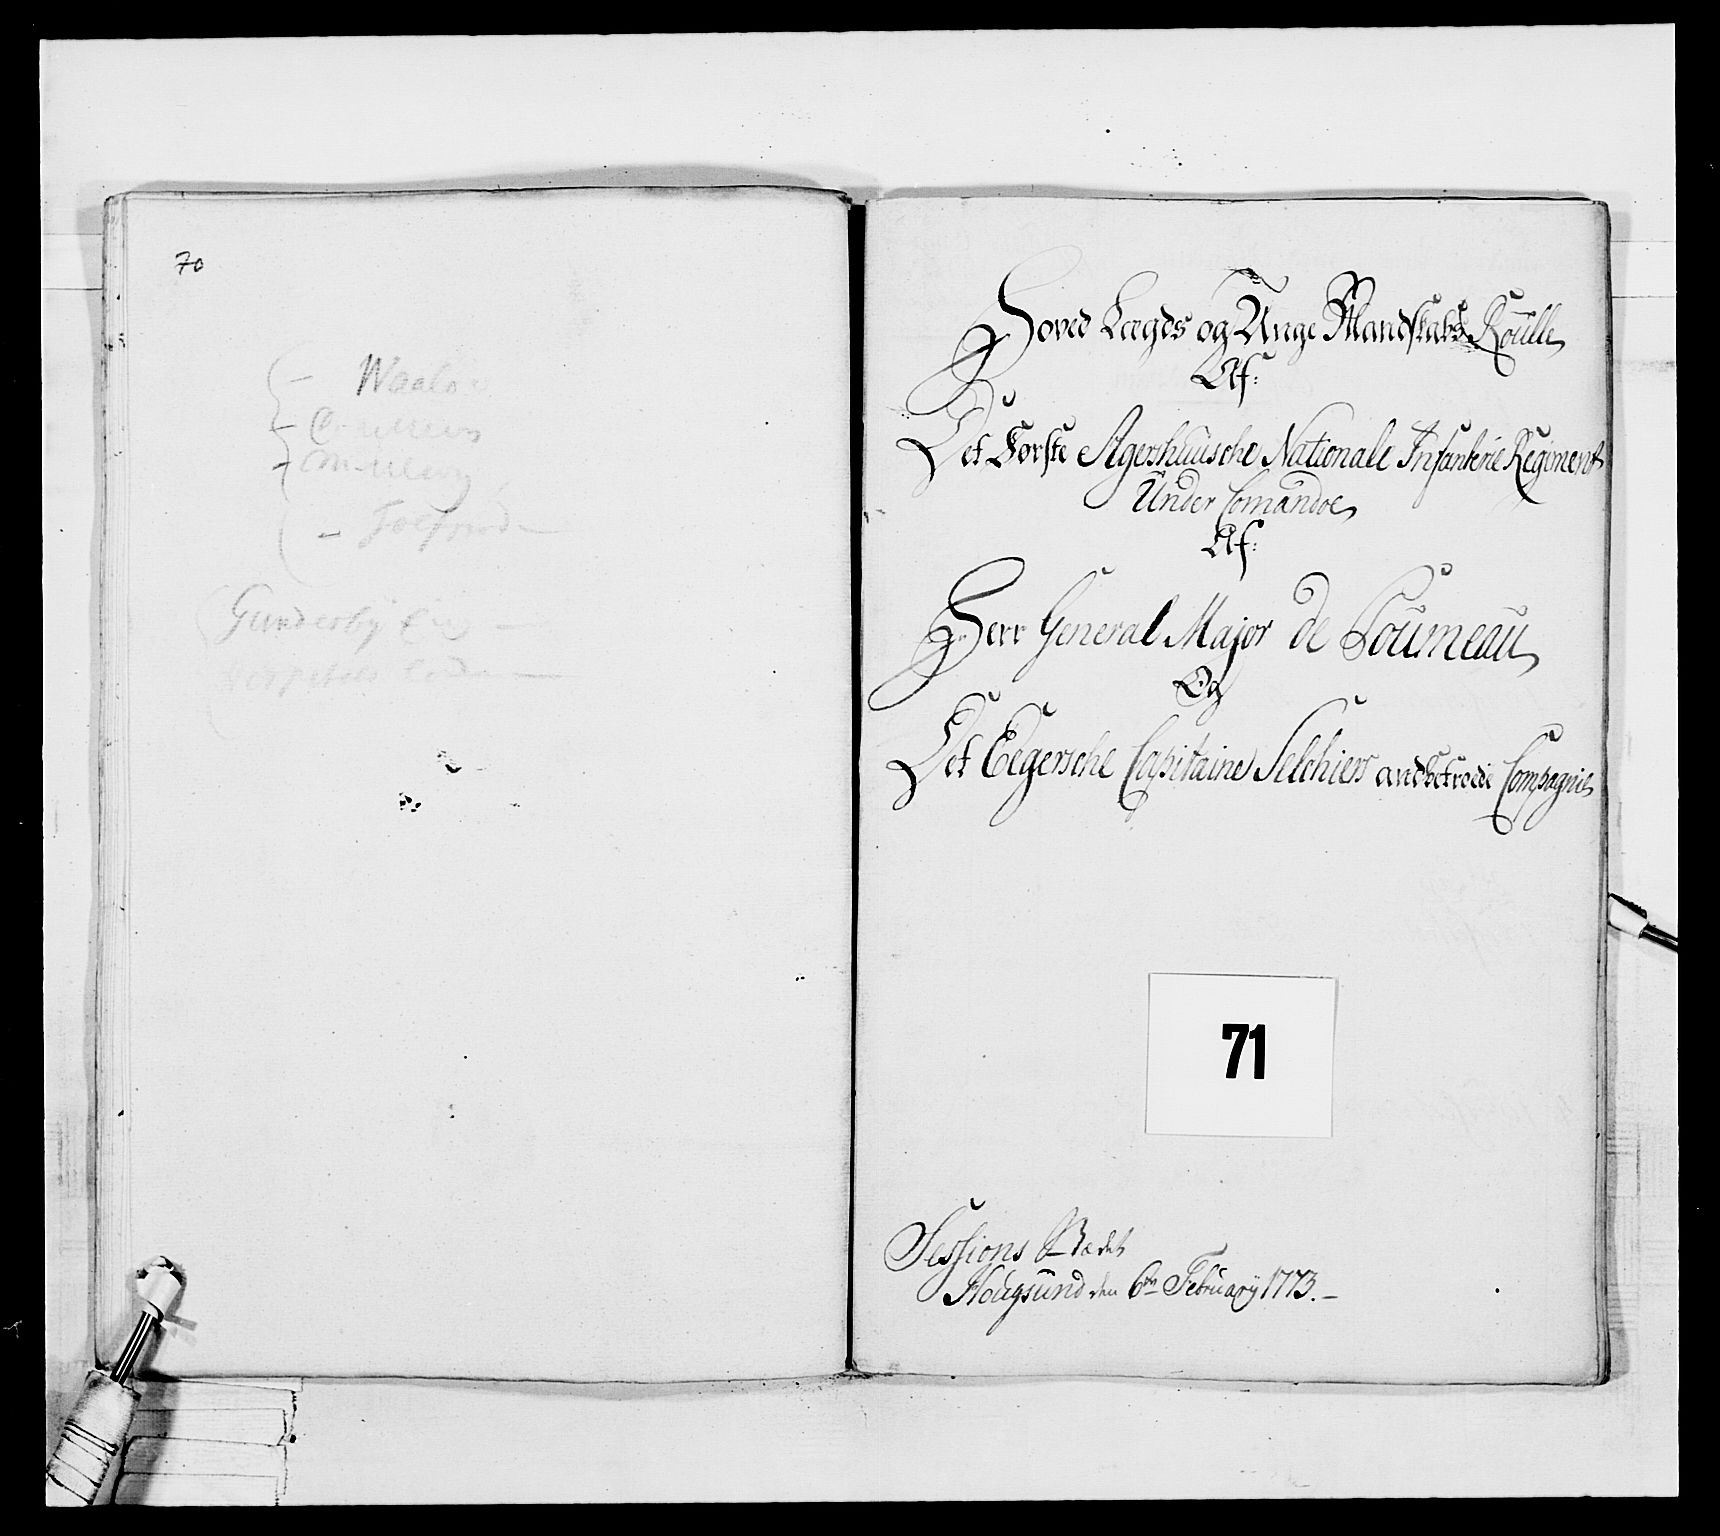 70
Waaler
Gunderby Eie
Hoved Lægds og Unge Mandskabs Roulle
Af:
Det Første Agershuusche Nationale Infanterie Regiment
Under Comandoe
Af:
Herr General Major de Soumeau
Og
Det Eegersche Capitaine Selchiers anbetroede Compagnie
71
Sessions Stædet
Hougsund den 6te February 1773.-